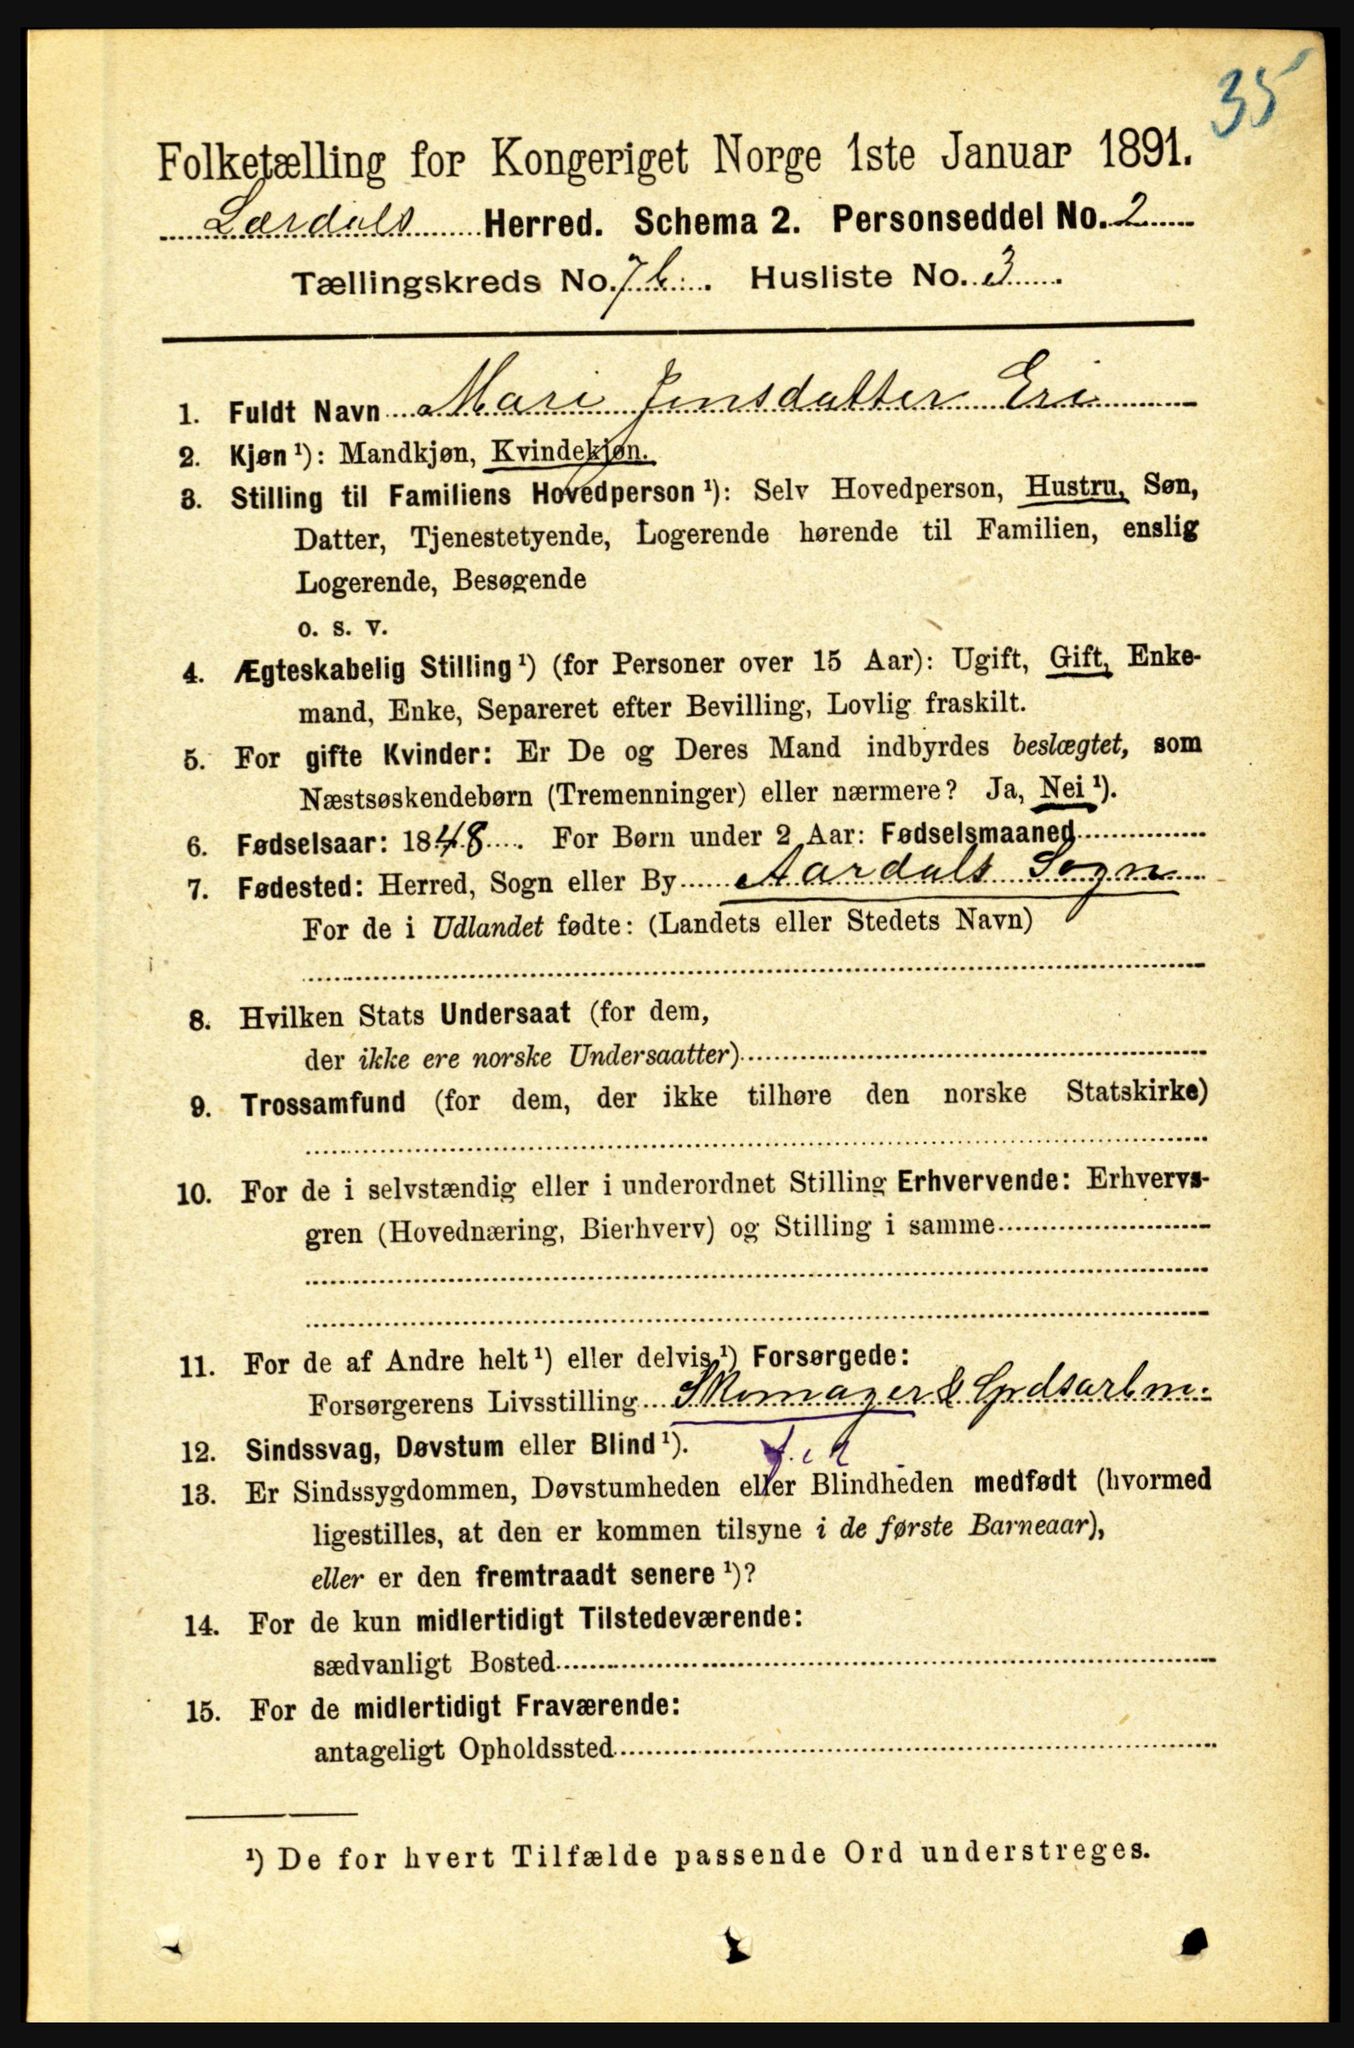 35
Folketælling for Kongeriget Norge 1ste Januar 1891.
Lærdals Herred. Schema 2. Personseddel No. 2
Tællingskreds No. 7b. Husliste No. 3
1. Fuldt Navn Mari Jensdatter Eri
2. Kjøn ¹): Mandkjøn, Kvindekjøn.
3. Stilling til Familiens Hovedperson ¹): Selv Hovedperson, Hustru, Søn,
Datter, Tjenestetyende, Logerende hørende til Familien, enslig
Logerende, Besøgende
o. s. v.
4. Ægteskabelig Stilling ¹) (for Personer over 15 Aar): Ugift, Gift, Enke-
mand, Enke, Separeret efter Bevilling, Lovlig fraskilt.
5. For gifte Kvinder: Er De og Deres Mand indbyrdes beslægtet, som
Næstsøskendebørn (Tremenninger) eller nærmere? Ja, Nei ¹).
6. Fødselsaar: 1848. For Børn under 2 Aar: Fødselsmaaned
7. Fødested: Herred, Sogn eller By Aardals Sogn
For de i Udlandet fødte: (Landets eller Stedets Navn)
8. Hvilken Stats Undersaat (for dem,
der ikke ere norske Undersaatter)
9. Trossamfund (for dem, der ikke tilhøre den norske Statskirke)
10. For de i selvstændig eller i underordnet Stilling Erhvervende: Erhvervs-
gren (Hovednæring, Bierhverv) og Stilling i samme
11. For de af Andre helt ¹) eller delvis ¹) Forsørgede:
Forsørgerens Livsstilling Skomager & Grdsarbm.
12. Sindssvag, Døvstum eller Blind ¹).
13. Er Sindssygdommen, Døvstumheden eller Blindheden medfødt (hvormed
ligestilles, at den er kommen tilsyne i de første Barneaar),
eller er den fremtraadt senere ¹)?
14. For de kun midlertidigt Tilstedeværende:
sædvanligt Bosted
15. For de midlertidigt Fraværende:
antageligt Opholdssted
¹) De for hvert Tilfælde passende Ord understreges.